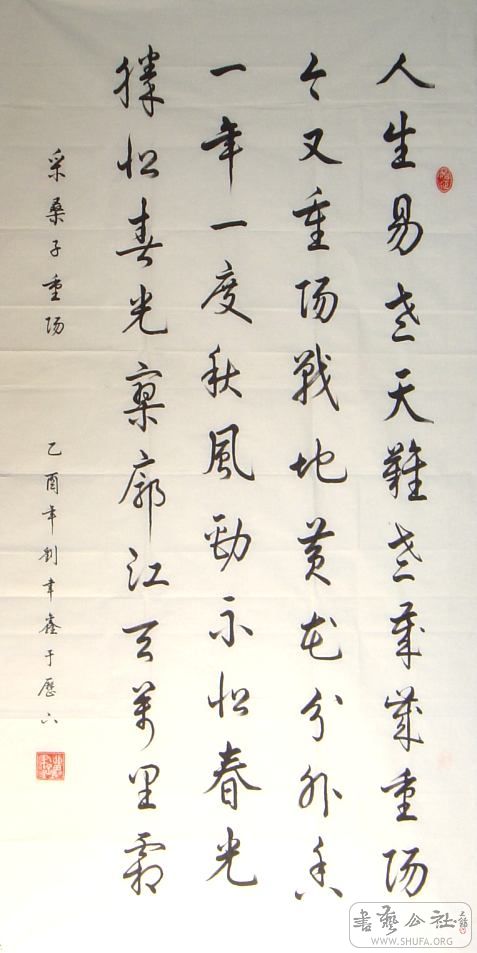 人生易老天難老歲歲重陽
今又重陽戰地黃花分外香
一年一度秋風勁不似春光
勝似春光寥廓江天萬里霜
采桑子重陽
乙酉年劉聿鑫于歷下
書藝公社
WWW.SHUFA.ORG